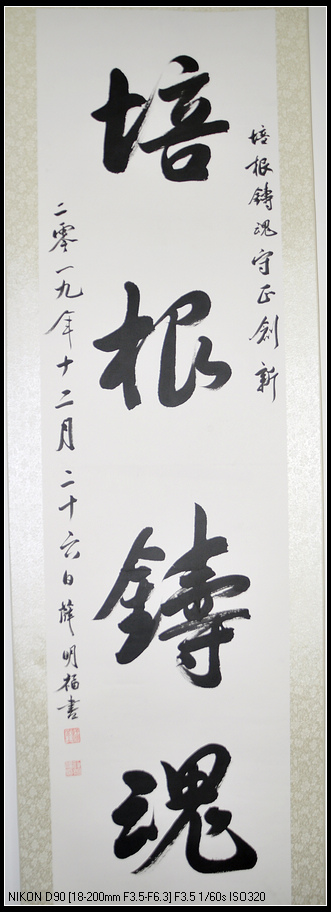 培根鑄魂守正創新
培根鑄魂
二零一九年十二月二十六日薛明福書
NIKON D90 [18-200mm F3.5-F6.3] F3.5 1/60s ISO320